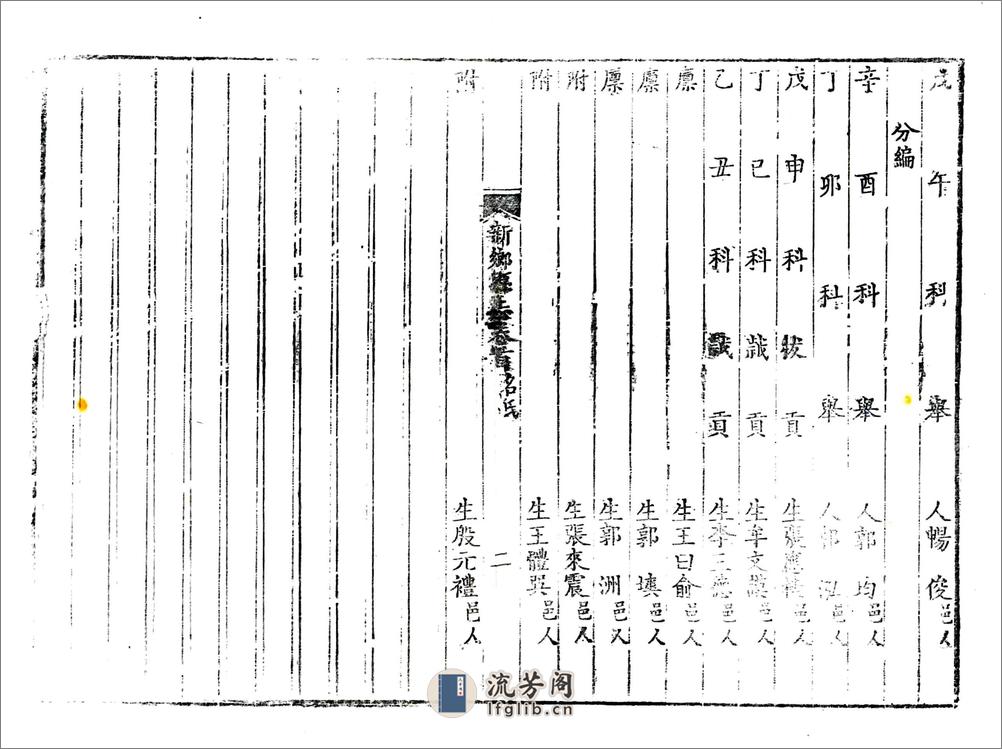 戊午科舉人暢俊邑人
分編
辛酉科舉人郭均邑人
丁卯科舉人郭泓邑人
戊申科拔貢生張應邑人
丁巳科歲貢生牟文邑人
乙丑科歲貢生李三德邑人
廪生王曰俞邑人
廪生郭塤邑人
廪生郭洲邑人
附生張來震邑人
附生王體巽邑人
新鄉縣志卷首名氏
二
附生殷元禮邑人
流芳阁
lfglib.cn